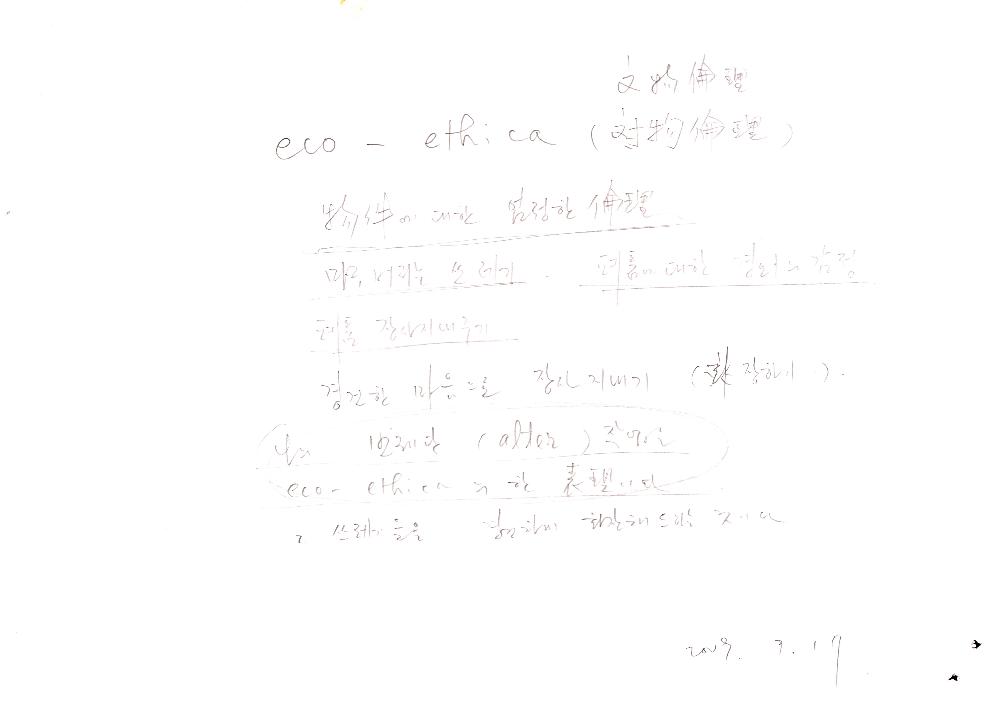 文物倫理
eco - ethica (対物倫理)
物件에 대한 엄정한 倫理
마구 버리는 쓰레기. 폐품에 대한 경외의 감정
폐품 장사지내주기
경건한 마음으로 장사 지내기 ( 장하기 ).
나의 번제단 (altar) 작에는
eco- ethica 의 한 表現이다
쓰레기들을 경건하게 화장해 드리는 것이다
2009. 3. 17